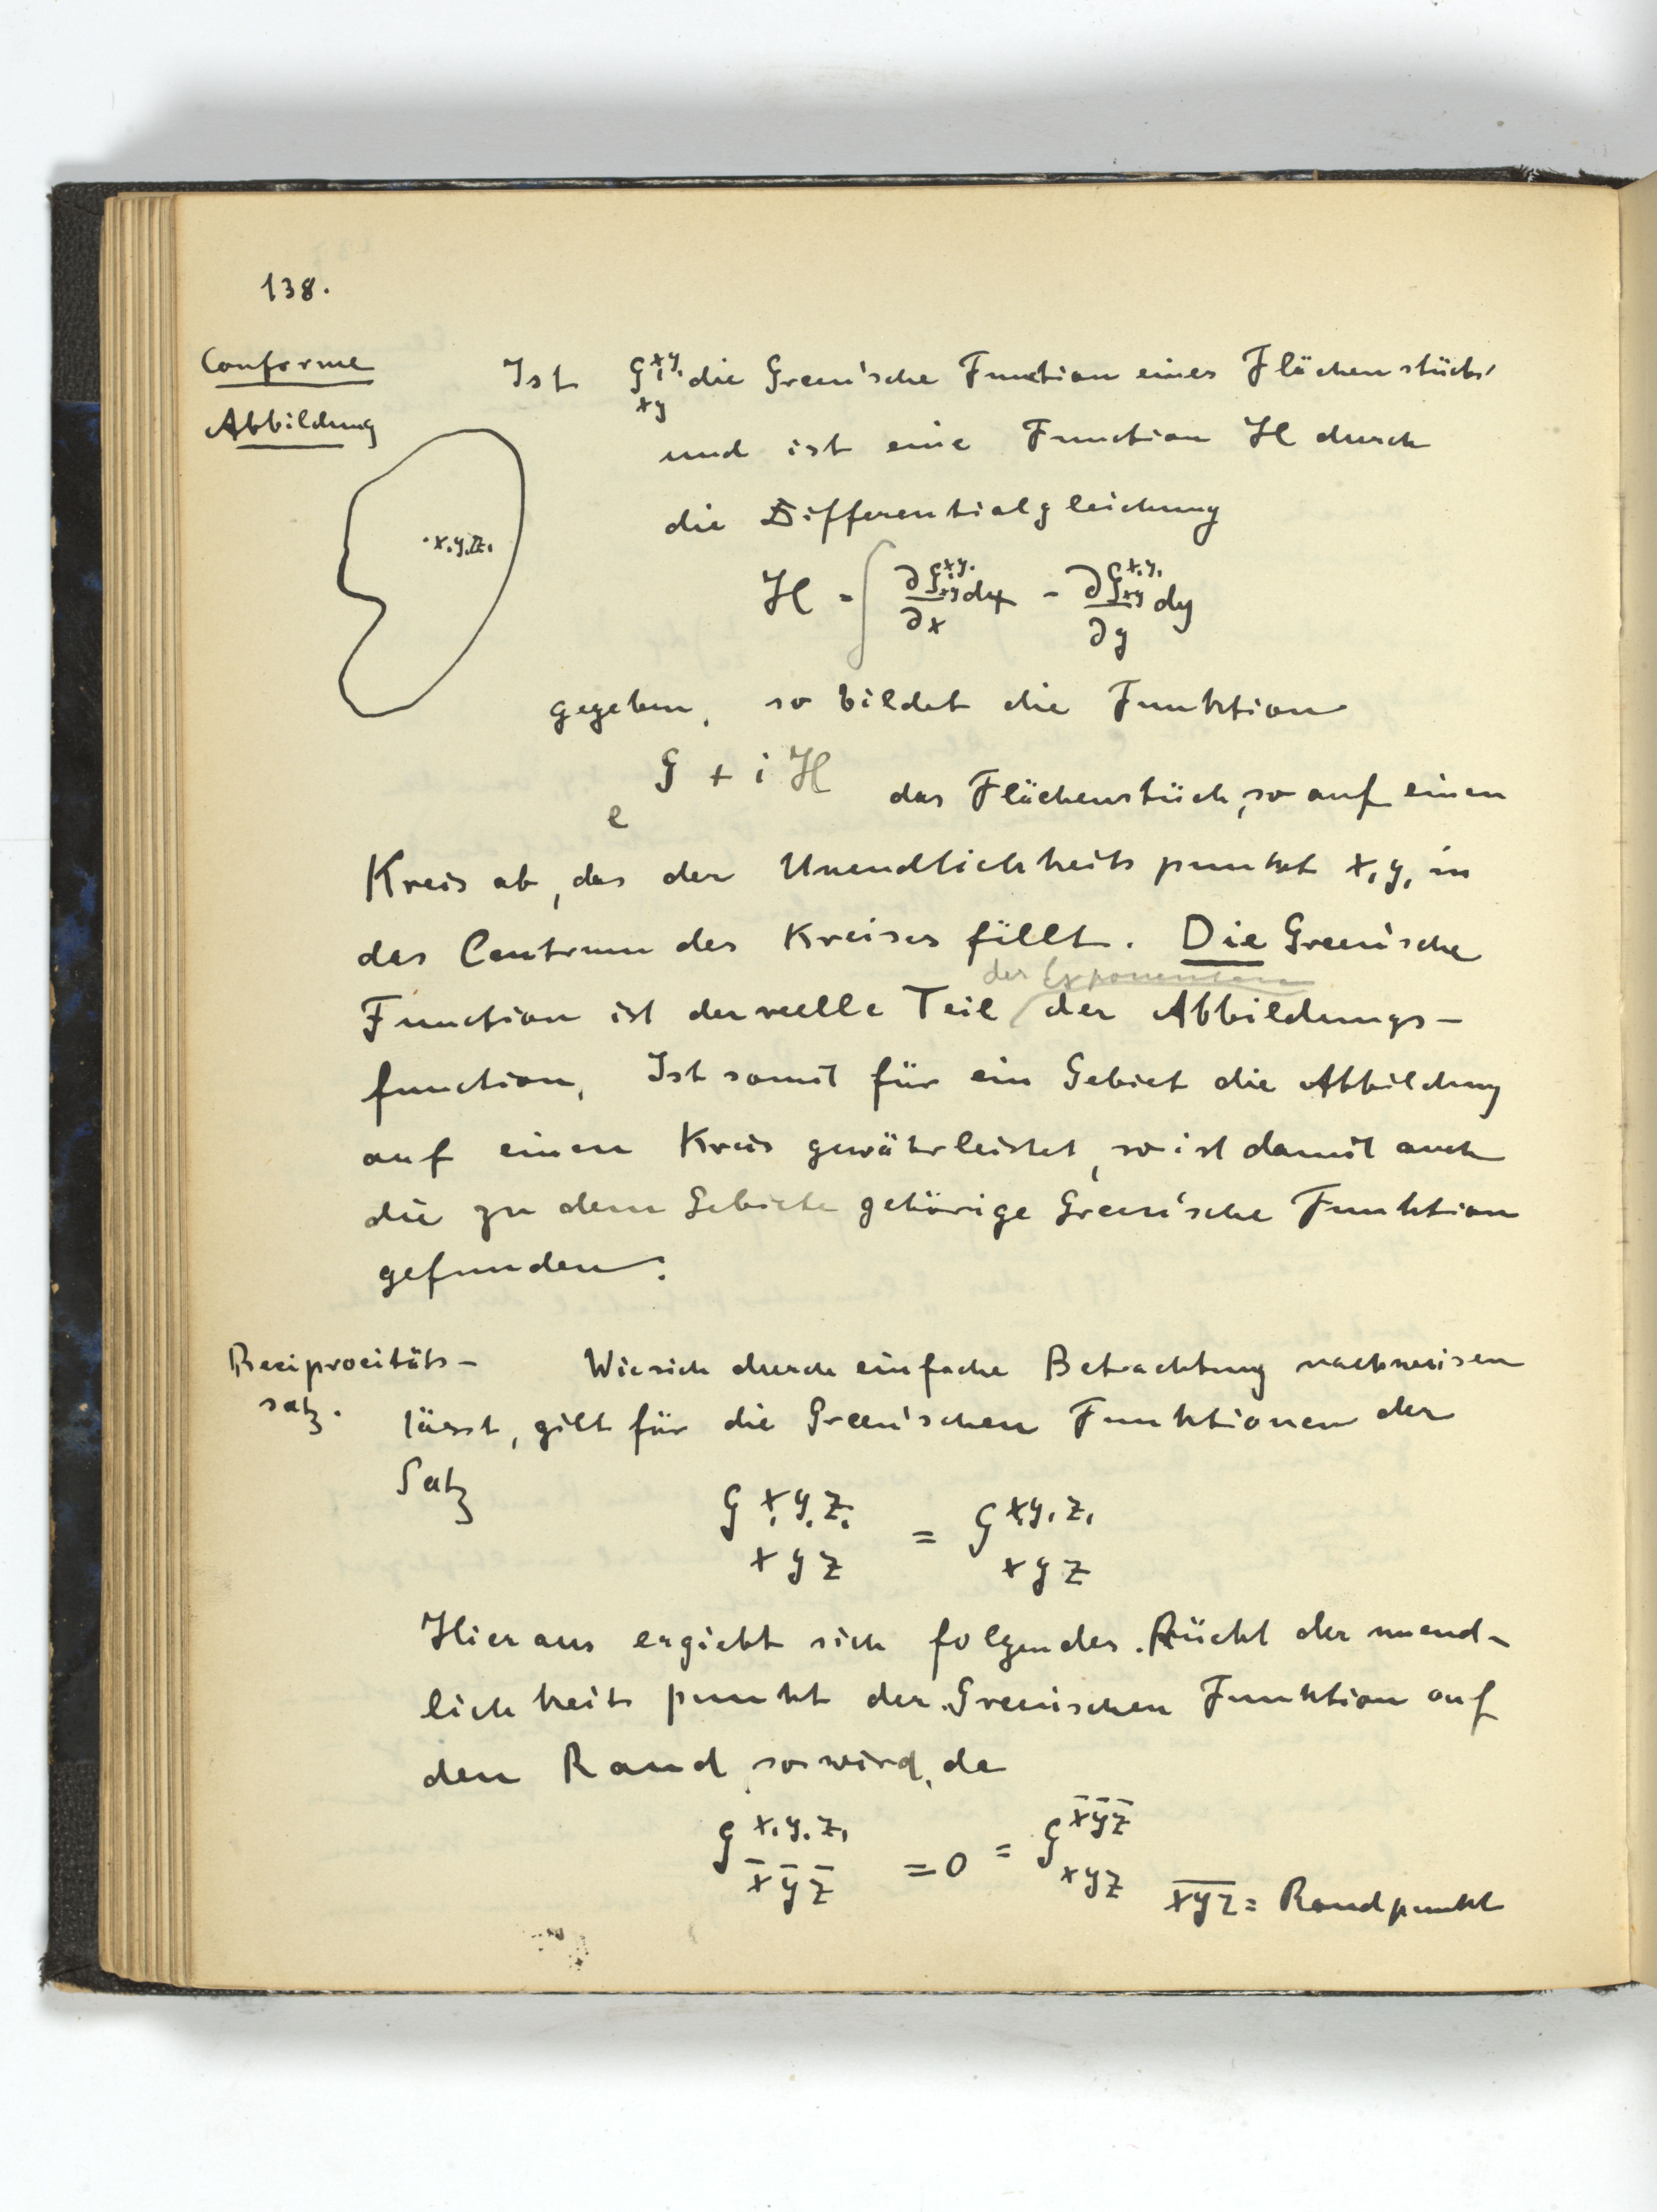 138.
Conforme
Abbildung
Ist G^{x₁y₁}_{xy} die Green'sche Function eines Flächenstücks,
und ist eine Function H durch
die Differentialgleichung
·x₁y₁z₁
H = ∫ ∂G^{x₁y₁}_{xy}/∂x dy - ∂G^{x₁y₁}_{xy}/∂y dy
gegeben, so bildet die Funktion
e^{G + iH} das Flächenstück, so auf einen
Kreis ab, das der Unendlichkeitspunkt x₁y₁ in
das Centrum des Kreises fällt. Die Green'sche
der Exponenten
Function ist der reelle Teil der Abbildungs-
function. Ist somit für ein Gebiet die Abbildung
auf einen Kreis gewährleistet, so ist damit auch
die zu dem Gebiete gehörige Green'sche Funktion
gefunden.
Reciprocitäts-
satz.
Wie sich durch einfache Betrachtung nachweisen
lässt, gilt für die Green'schen Funktionen der
Satz
G^{x₁y₁z₁}_{xyz} = G^{x₁y₁z₁}_{xyz}
Hieraus ergiebt sich folgendes. Rückt der unend-
lichkeitspunkt der Greenischen Funktion auf
den Rand, so wird, da
G^{x₁y₁z₁}_{x̄ȳz̄} = 0 = G^{x̄ȳz̄}_{xyz}
x̄ȳz̄ = Randpunkt